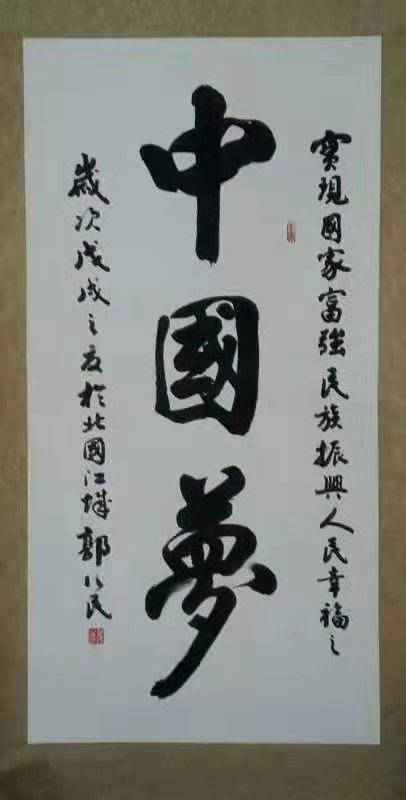 實現國家富強民族振興人民幸福之
中國夢
歲次戊戌之夏於北國江城郭民